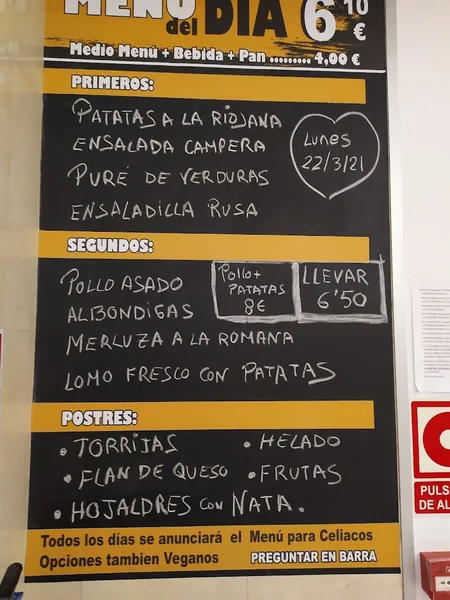 MENÚ
del DIA 6'10 €
Medio Menú + Bebida + Pan ......... 4,00 €
PRIMEROS:
PATATAS A LA RIOJANA
ENSALADA CAMPERA
PURÉ DE VERDURAS
ENSALADILLA RUSA
Lunes
22/3/21
SEGUNDOS:
POLLO ASADO
ALBONDIGAS
MERLUZA A LA ROMANA
LOMO FRESCO CON PATATAS
Pollo +
PATATAS
8€
LLEVAR
6'50
POSTRES:
• TORRIJAS
• HELADO
• FLAN DE QUESO
• FRUTAS
• HOJALDRES CON NATA.
Todos los días se anunciará el Menú para Celiacos
Opciones tambien Veganos PREGUNTAR EN BARRA
PULS
DE AL